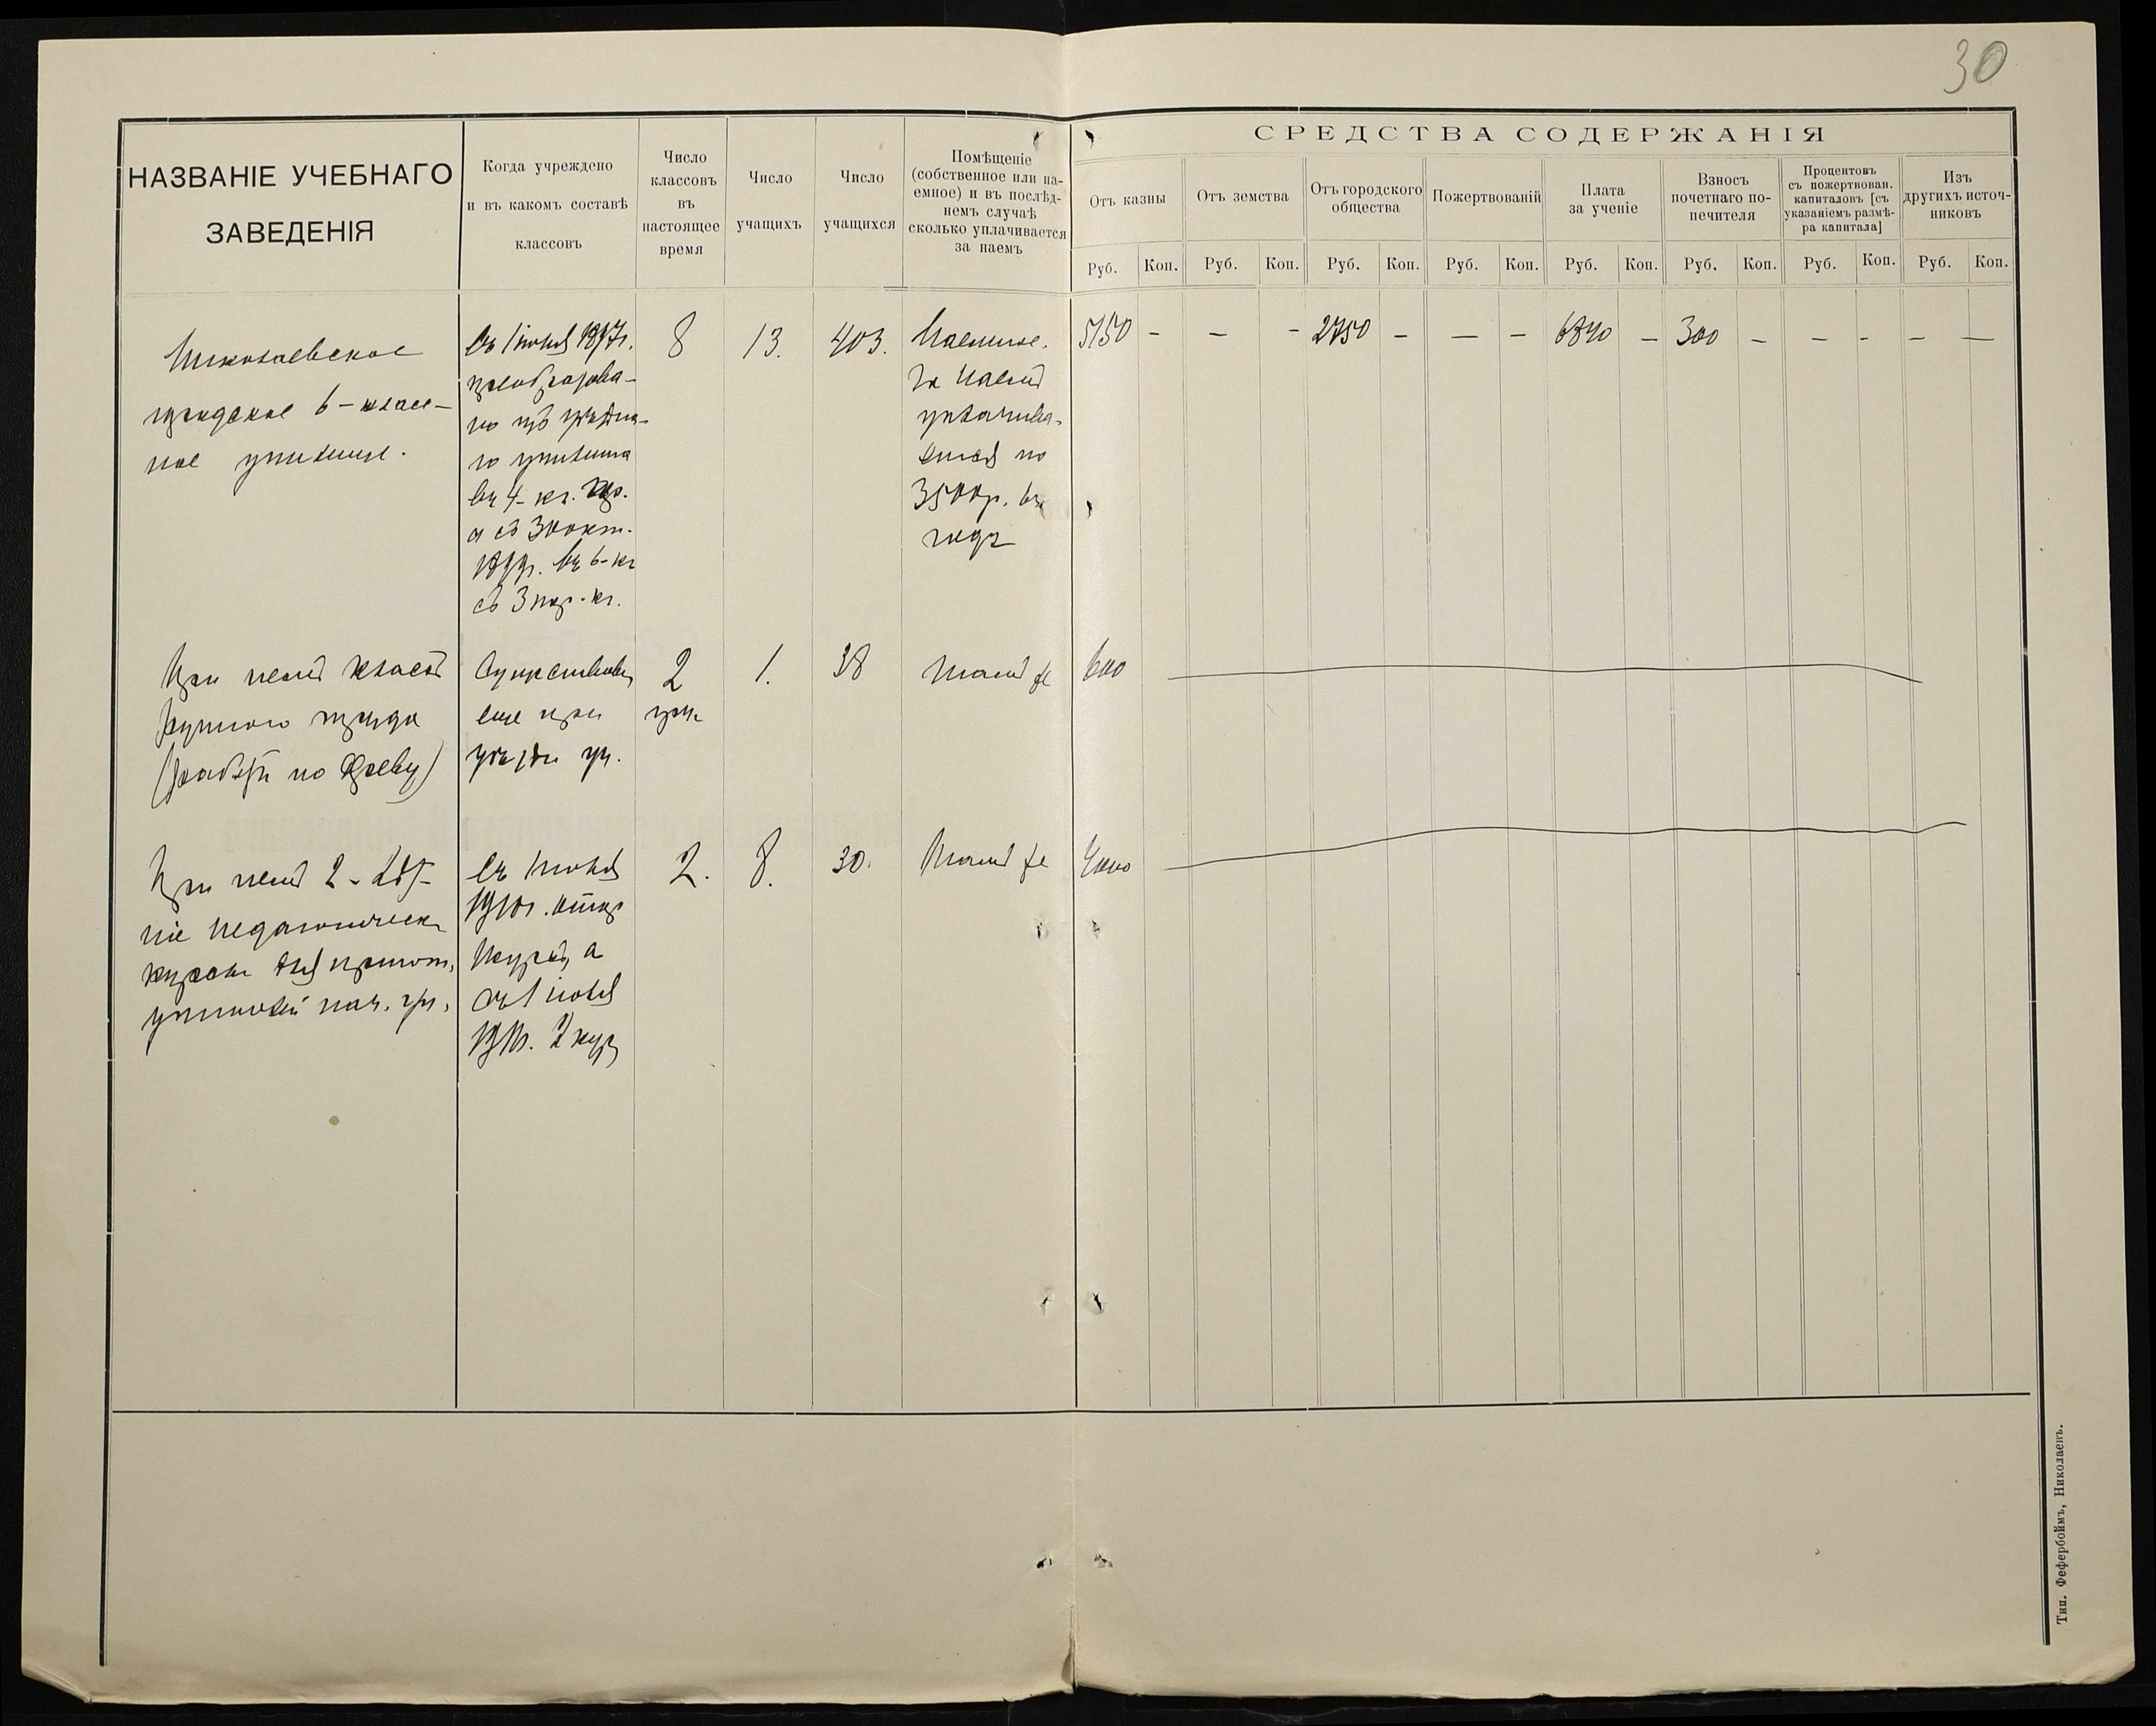 30
НАЗВАНІЕ УЧЕБНАГО
ЗАВЕДЕНІЯ
Когда учреждено
и въ какомъ составѣ
классовъ
Число
классовъ
въ
настоящее
время
Число
учащихъ
Число
учащихся
Помѣщеніе
(собственное или на-
емное) и въ послѣд-
немъ случаѣ
сколько уплачивается
за наемъ
СРЕДСТВА СОДЕРЖАНІЯ
Отъ казны
Отъ земства
Отъ городского
общества
Пожертвованій
Плата
за ученіе
Взносъ
почетнаго по-
печителя
Процентовъ
съ пожертвован.
капиталовъ [съ
указаніемъ размѣ-
ра капитала]
Изъ
другихъ источ-
никовъ
Руб. Коп. Руб. Коп. Руб. Коп. Руб. Коп. Руб. Коп. Руб. Коп. Руб. Коп. Руб. Коп.
Николаевское
городское 6-класс-
ное училище.
Съ 1 іюля
преобразова-
но изъ уѣздна-
го училища
въ 4-кл. гор.
а съ 30 окт.
въ 6-кл
съ 3 пар. кл.
8
13.
403.
Наемное.
За наемъ
уплачива-
ется по
3500 р. въ
годъ
5150 - - - 2750 - - - 6840 - 300 - - - - -
При немъ классъ
ручного труда
(работы по дереву)
Существовал
еще при
уѣздн уч.
2
груп.
1.
38
Тамъ же
600
При немъ 2-лѣт-
ніе педагогическ
курсы для пригот.
учителей нач. уч.
Съ 1 іюля
1910 г. откр
1 курсъ, а
съ 1 іюля
1911 г. 2 курс
2.
8.
30.
Тамъ же
Тип. Фефербоймъ, Николаевъ.